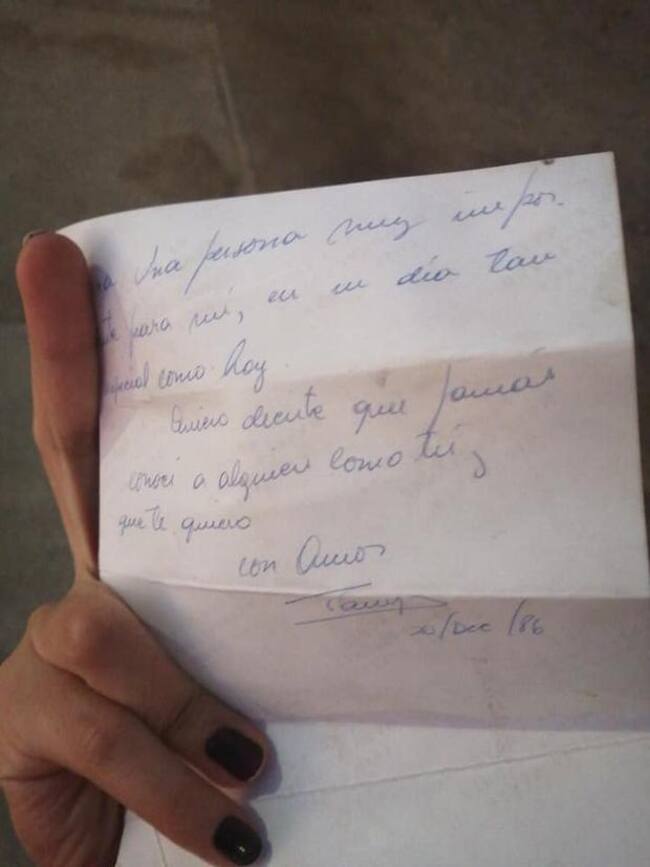 una persona muy impor-
para mí, en un día tan
como hoy.
Quiero decirte que jamás
conocí a alguien como tú y
que te quiero
con Amor
/Dic/86